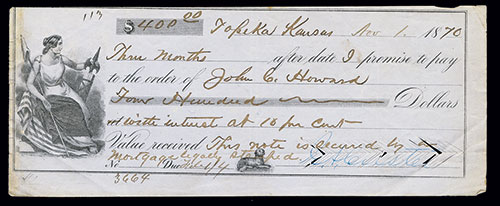 113
$400.00 Topeka Kansas Nov 1. 1870
Three Months after date I promise to pay
to the order of John C. Howard
Four Hundred Dollars
with interest at 10 per Cent
Value received This note is secured by a
Mortgage legally stamped.
No Due
3664